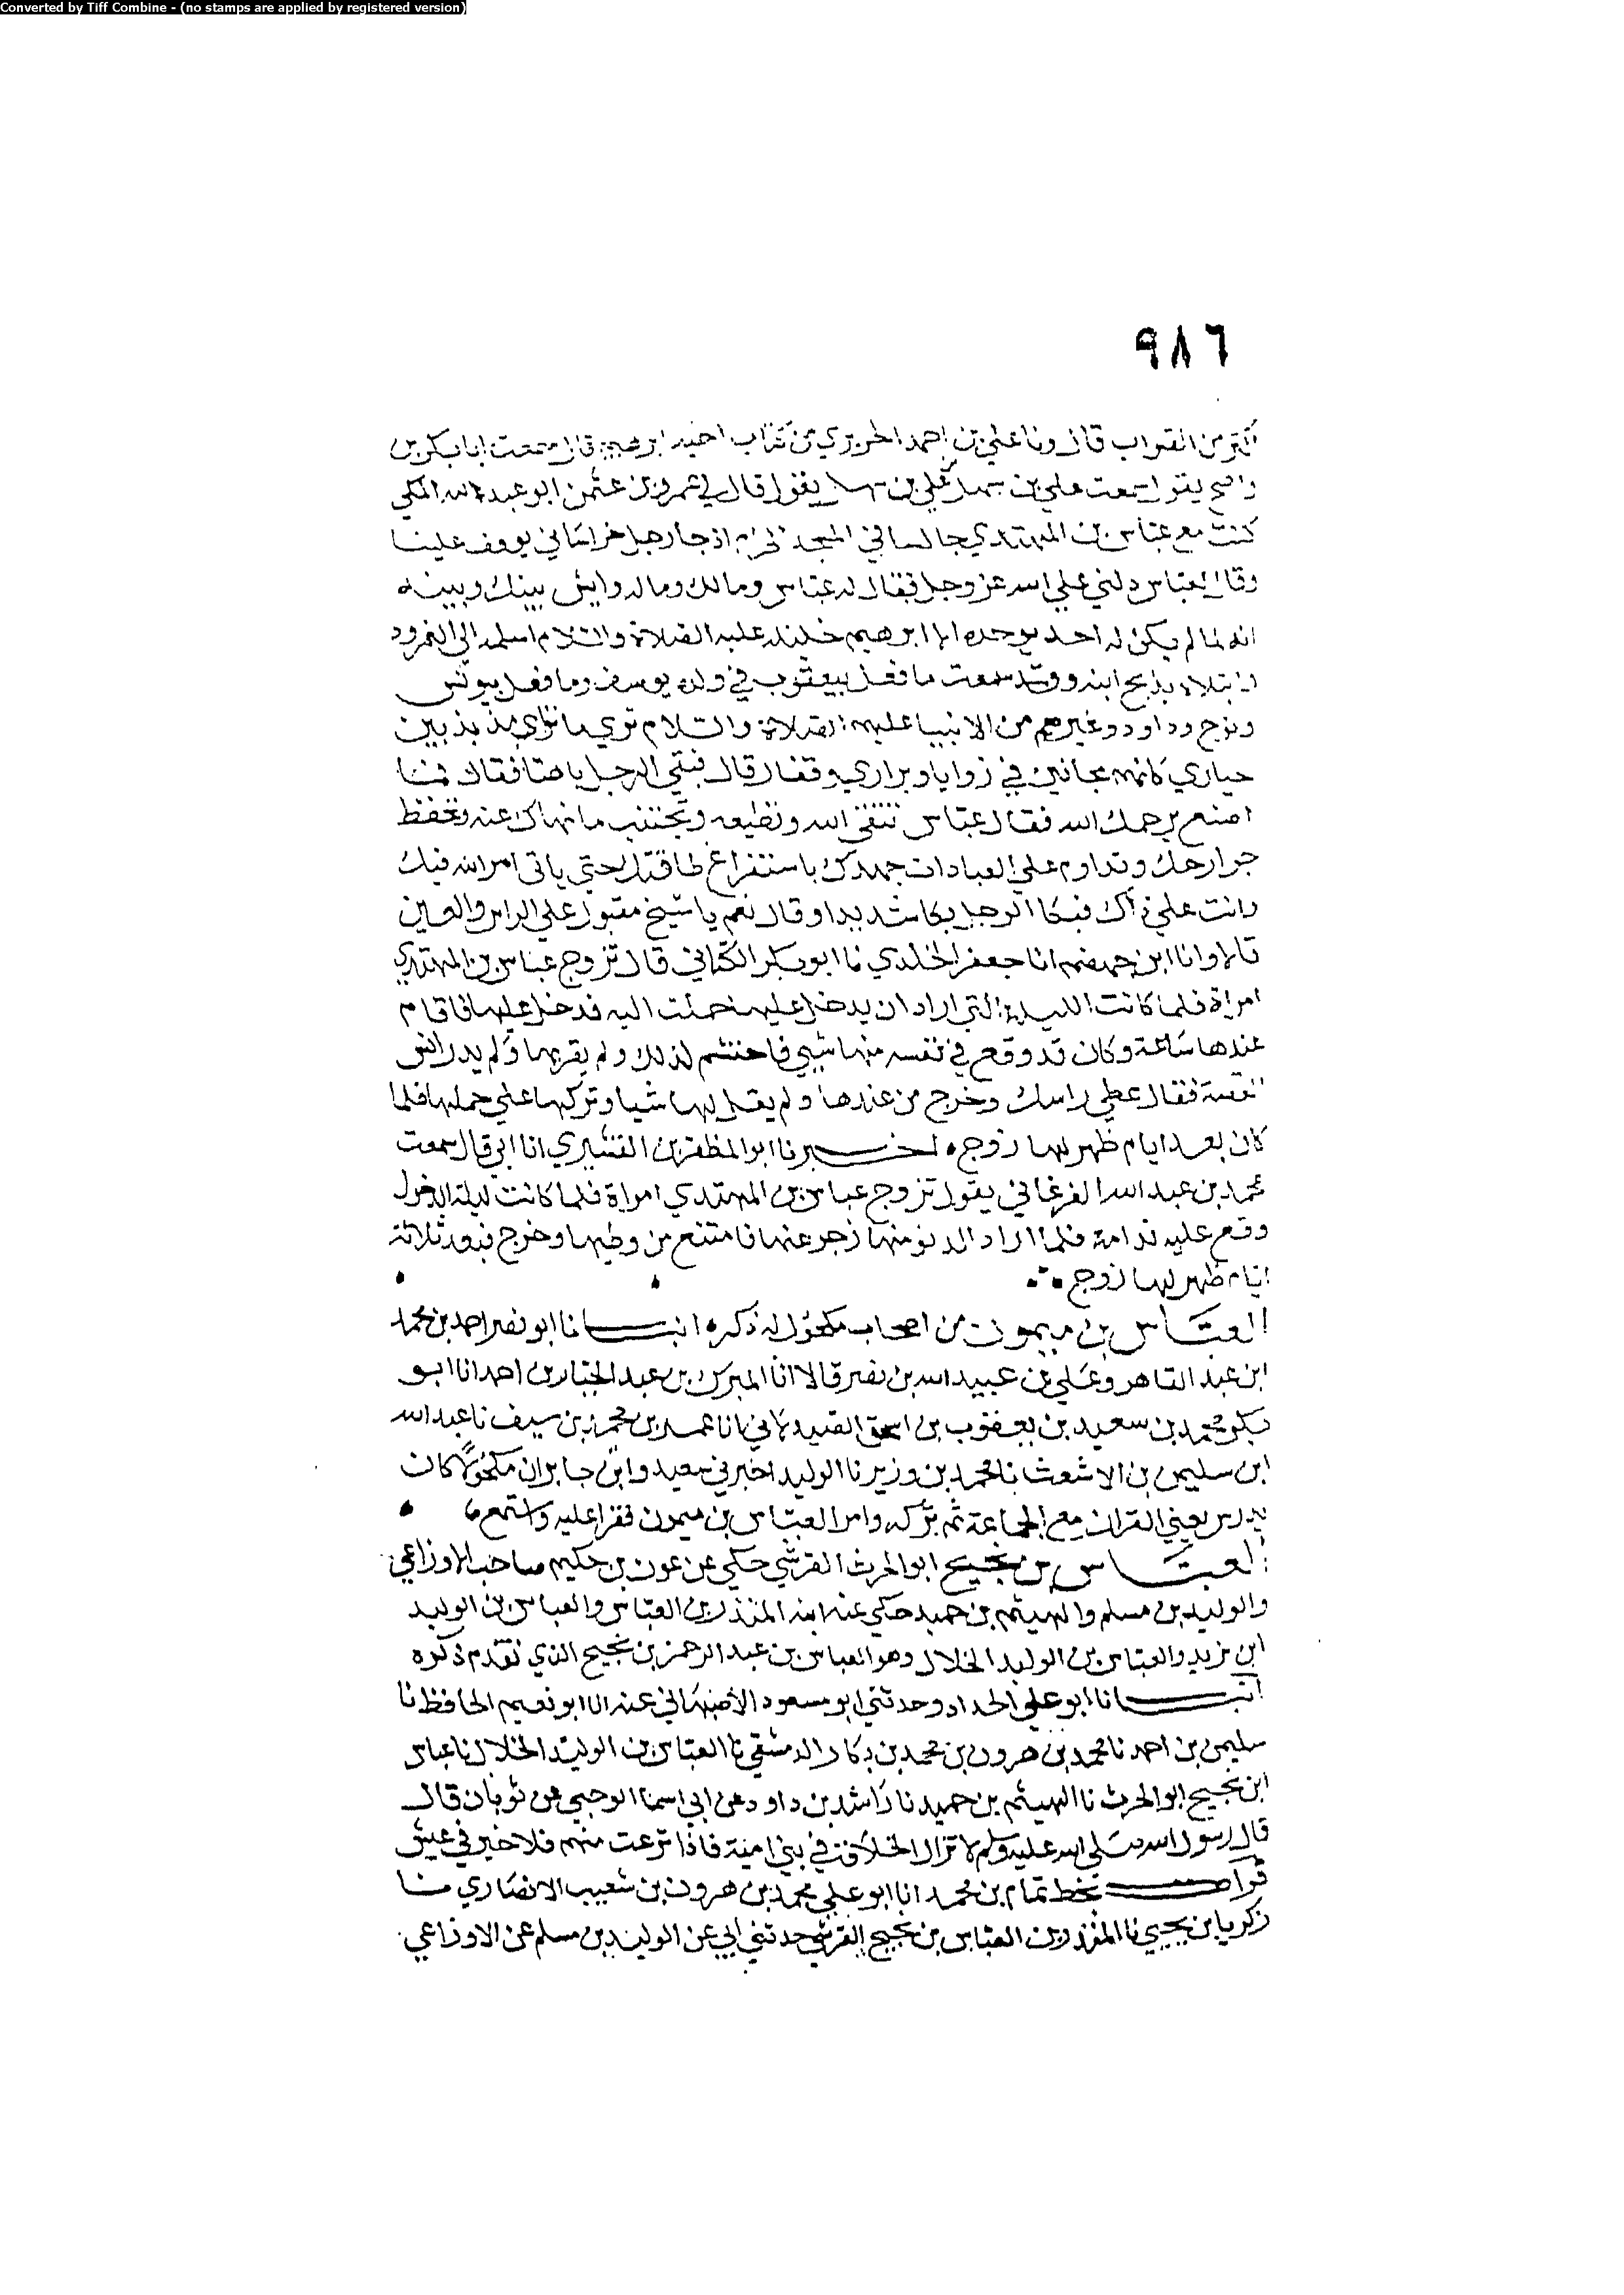 Converted by Tiff Combine - (no stamps are applied by registered version)
٩٨٦
من القواب قال ونا علي بن احمد من كتاب قال سمعت ابا بكر بن
يقول سمعت علي بن يقول قال لي عمرو بن عثمن ابو عبد الله المكي
كنت مع عباس بن المهتدي جالسا في المسجد الحرام اذ جا رجل خراساني فوقف علينا
وقال لعباس دلني علي الله عز وجل فقال له عباس ومالك وماله وايش بينك وبينه
انه لما لم يكن له احد يوحده الا ابرهيم خليله عليه الصلاة والسلام اسلمه الي النمرود
وابتلاه بذبح ابنه وقد سمعت ما فعل بيعقوب في ولده يوسف وما فعل بيونس
ونوح وداود وغيرهم من الانبيا عليهم الصلاة والسلام تري مذبذبين
حياري كانهم مجانين في زوايا وبراري وقفار قال فبقي الرجل باهتا فقال فما
اصنع يرحمك الله فقال عباس تتقي الله وتطيعه وتجتنب ما نهاك عنه وتحفظ
جوارحك وتداوم علي العبادات جهدك باستفراغ طاقتك حتي ياتي امر الله فيك
وانت علي ذاك فبكا الرجل بكا شديدا وقال نعم يا شيخ مقبول علي الراس والعين
قالا وانا ابن جهضم انا جعفر الخلدي نا ابو بكر الكتاني قال تزوج عباس بن المهتدي
امراة فلما كانت الليلة التي اراد ان يدخل عليها حملت اليه فدخل عليها فاقام
عندها ساعة وكان قد وقع في نفسه منها شي فاحتشم لذلك ولم يقربها ولم يدر ايش
القصة فقال غطي راسك وخرج من عندها ولم يقل لها شيا وتركها علي جملها فلما
كان بعد ايام ظهر لها زوج ه اخبرنا ابو المظفر بن القشيري انا ابي قال سمعت
محمد بن عبد الله الفرغاني يقول تزوج عباس بن المهتدي امراة فلما كانت ليلة الدخول
وقع عليه ندامة فلما اراد الدنو منها زجر عنها فامتنع من وطيها وخرج فبعد ثلاثة
ايام ظهر لها زوج
العباس بن ميمون من اصحاب مكحول له ذكر ه انبانا ابو نصر احمد بن محمد
ابن عبد القاهر وعلي بن عبيد الله بن نصر قالا انا المبرك بن عبد الجبار بن احمد انا ابو
بكر محمد بن سعيد بن يعقوب بن اسحق الصيدلاني انا عمر بن محمد بن سيف نا عبد الله
ابن سليمن بن الاشعث نا محمد بن وزير نا الوليد اخبرني سعيد وابن جابر ان مكحولا كان
يدرس يعني القران مع الجماعة ثم تركه وامر العباس بن ميمون فقرا عليه واستمع
العباس بن نجيح ابو الحرث القرشي حكي عن عون بن حكيم صاحب الاوزاعي
والوليد بن مسلم والهيثم بن حميد حكي عنه ابنه المنذر بن العباس والعباس بن الوليد
ابن مزيد والعباس بن الوليد الخلال وهو العباس بن عبد الرحمن بن نجيح الذي تقدم ذكره
انبانا ابو علي الحداد وحدثني ابو مسعود الاصبهاني عنه انا ابو نعيم الحافظ نا
سليمن بن احمد نا محمد بن هرون بن محمد بن بكار الدمشقي نا العباس بن الوليد الخلال نا عباس
ابن نجيح ابو الحرث نا الهيثم بن حميد نا راشد بن داود عن ابي اسما الرحبي عن ثوبان قال
قال رسول الله صلي الله عليه وسلم لا تزال الخلافة في بني امية فاذا نزعت منهم فلا خير في عيش
قرات بخط تمام بن محمد انا ابو علي محمد بن هرون بن شعيب الانصاري نا
زكريا بن يحيي نا المنذر بن العباس بن نجيح القرشي حدثني ابي عن الوليد بن مسلم عن الاوزاعي